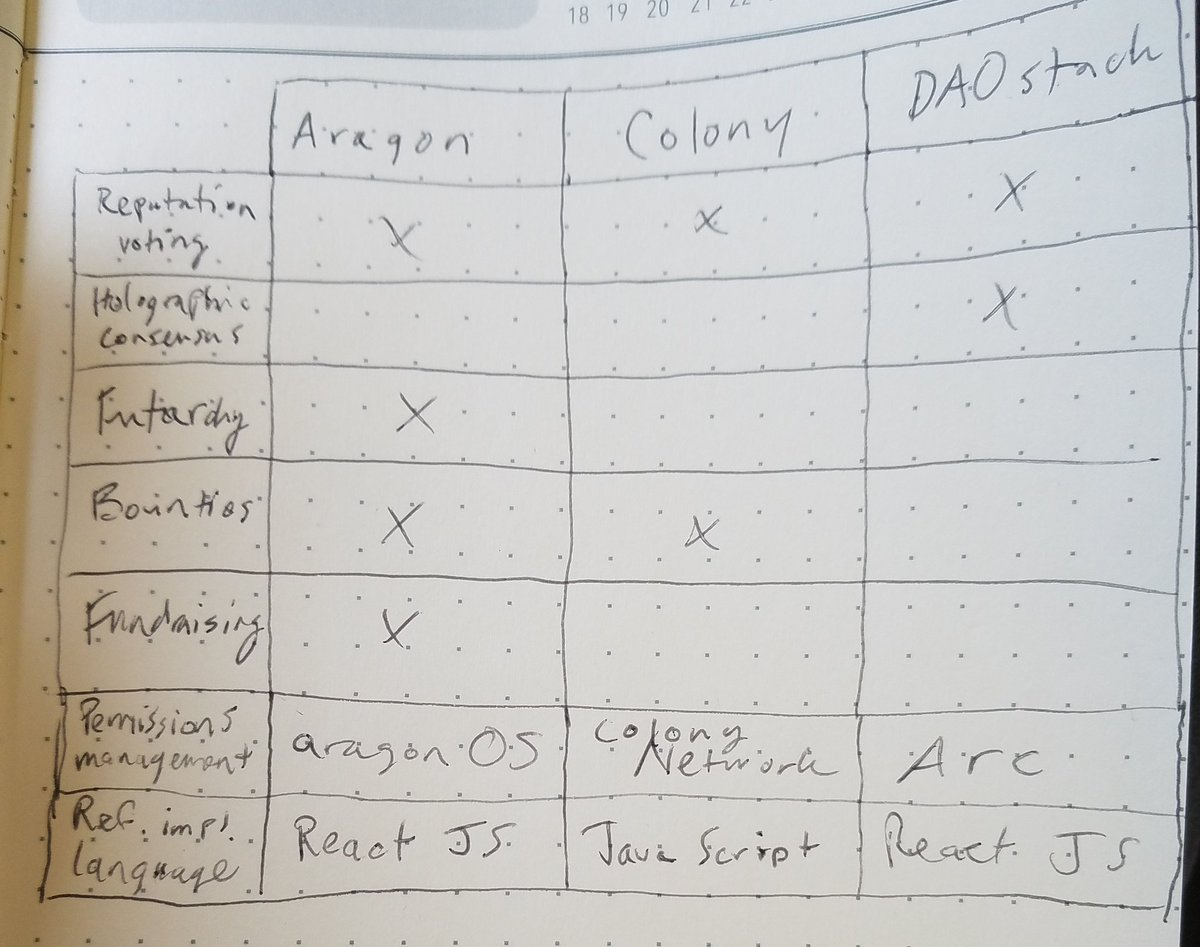 18 19 20 21 22
Aragon Colony DAOstack
Reputation
voting X X X
Holographic
consensus X
Futarchy X
Bounties X X
Fundaising X
Permissions
management aragonOS Colony
Network Arc
Ref. impl.
language React JS JavaScript React JS